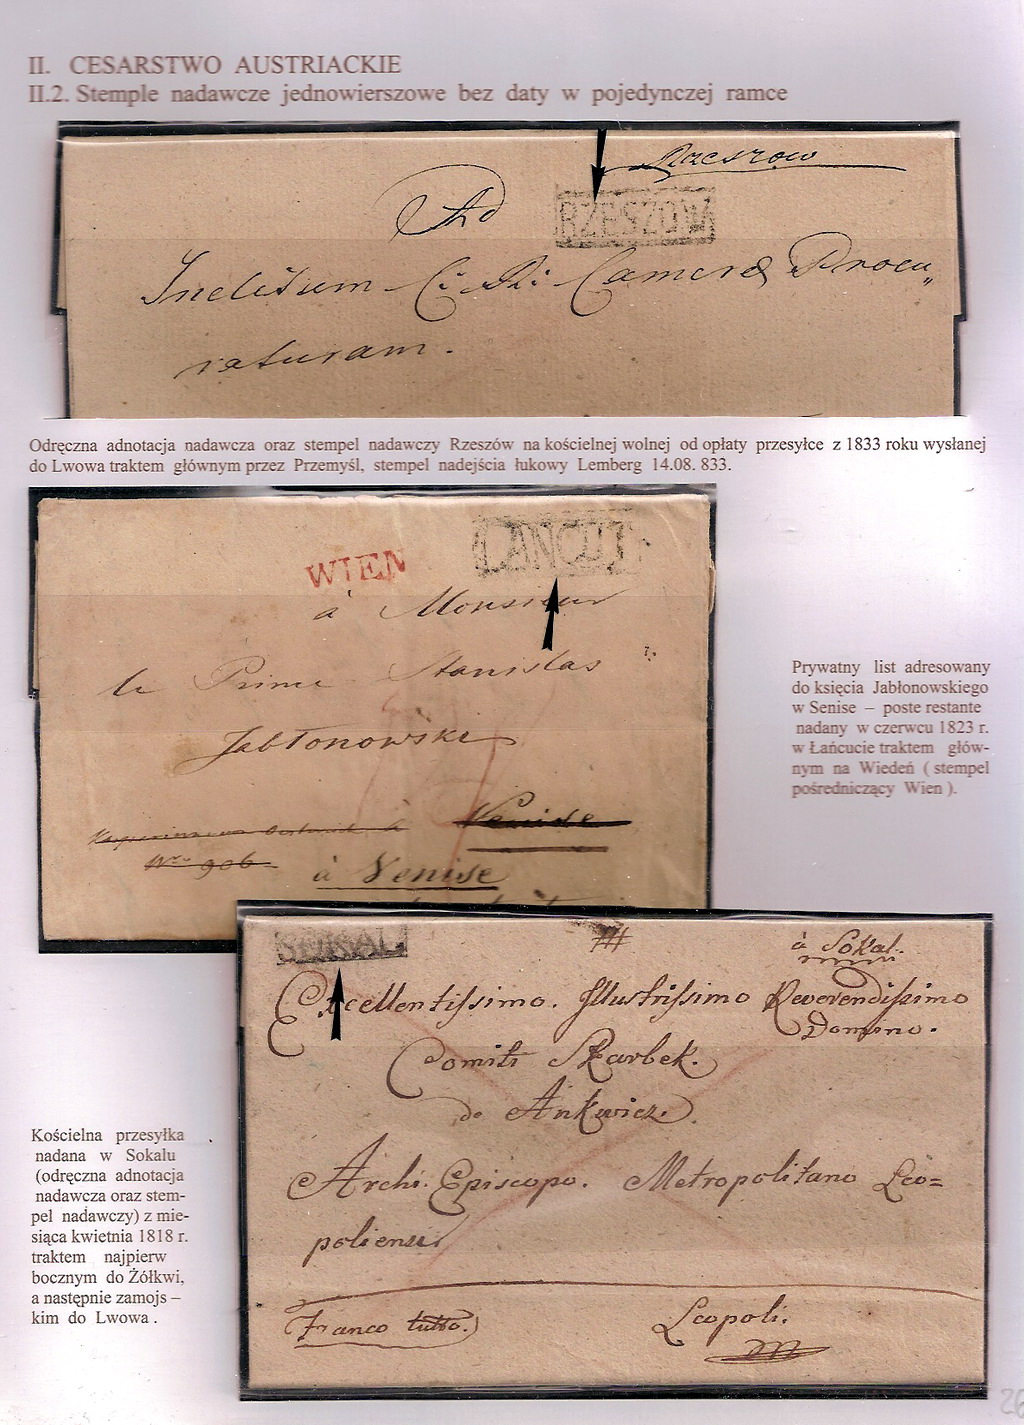 II. CESARSTWO AUSTRIACKIE
II.2. Stemple nadawcze jednowierszowe bez daty w pojedynczej ramce
Rzeszow
RZESZOW
Ad
Inclitum C: R: Camerae Procu„
raturam.
Odręczna adnotacja nadawcza oraz stempel nadawczy Rzeszów na kościelnej wolnej od opłaty przesyłce z 1833 roku wysłanej
do Lwowa traktem głównym przez Przemyśl, stempel nadejścia łukowy Lemberg 14.08. 833.
LANCUT
WIEN
à Monsieur
le Prince Stanislas
Jabłonowski
Venise
Nro 906
à Venise
Prywatny list adresowany
do księcia Jabłonowskiego
w Senise – poste restante
nadany w czerwcu 1823 r.
w Łańcucie traktem głów-
nym na Wiedeń ( stempel
pośredniczący Wien ).
SOKAL
à Sokal.
Excellentissimo. Illustrissimo Reverendissimo
Domino.
Comiti Skarbek.
de Ankwicz.
Archi. Episcopo. Metropolitano Leo=
poliensi
Franco tutto.
Leopoli.
Kościelna przesyłka
nadana w Sokalu
(odręczna adnotacja
nadawcza oraz stem-
pel nadawczy) z mie-
siąca kwietnia 1818 r.
traktem najpierw
bocznym do Żółkwi,
a następnie zamojs –
kim do Lwowa .
26